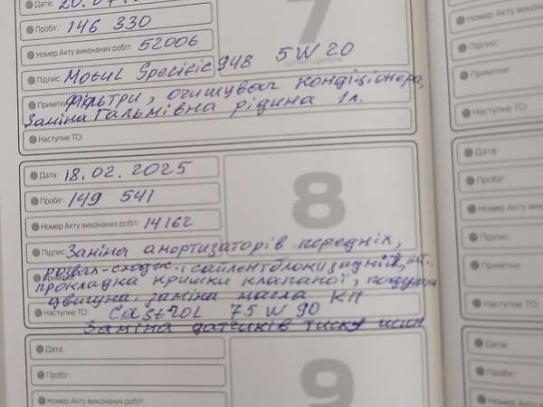 Дата: 20.07.
7
Пробіг: 146 330
Номер Акту виконаних робіт: 52006
Підпис: Motul Specific 948 5W20
Примітки: Фільтри, очищувач кондиціонера,
Заміна Гальмівна рідина 1л.
Наступне ТО:
Дата: 18.02.2025
8
Пробіг: 149 541
Номер Акту виконаних робіт: 14162
Підпис: Заміна амортизаторів передніх,
розвал-сходж. сайлентблоки задній
прокладка кришки клапаної, подушка
двигуна. заміна масла КП
Наступне ТО: Castrol 75W90
Заміна датчиків тиску шин
Дата:
9
Пробіг:
Номер Акту виконаних робіт:
Номер Акту виконаних
Підпис:
Примітки:
Наступне ТО:
Дата:
Пробіг:
Номер Акту викона
Підпис:
Примітки:
Наступне ТО:
Дата:
Пробіг:
Номер Акту